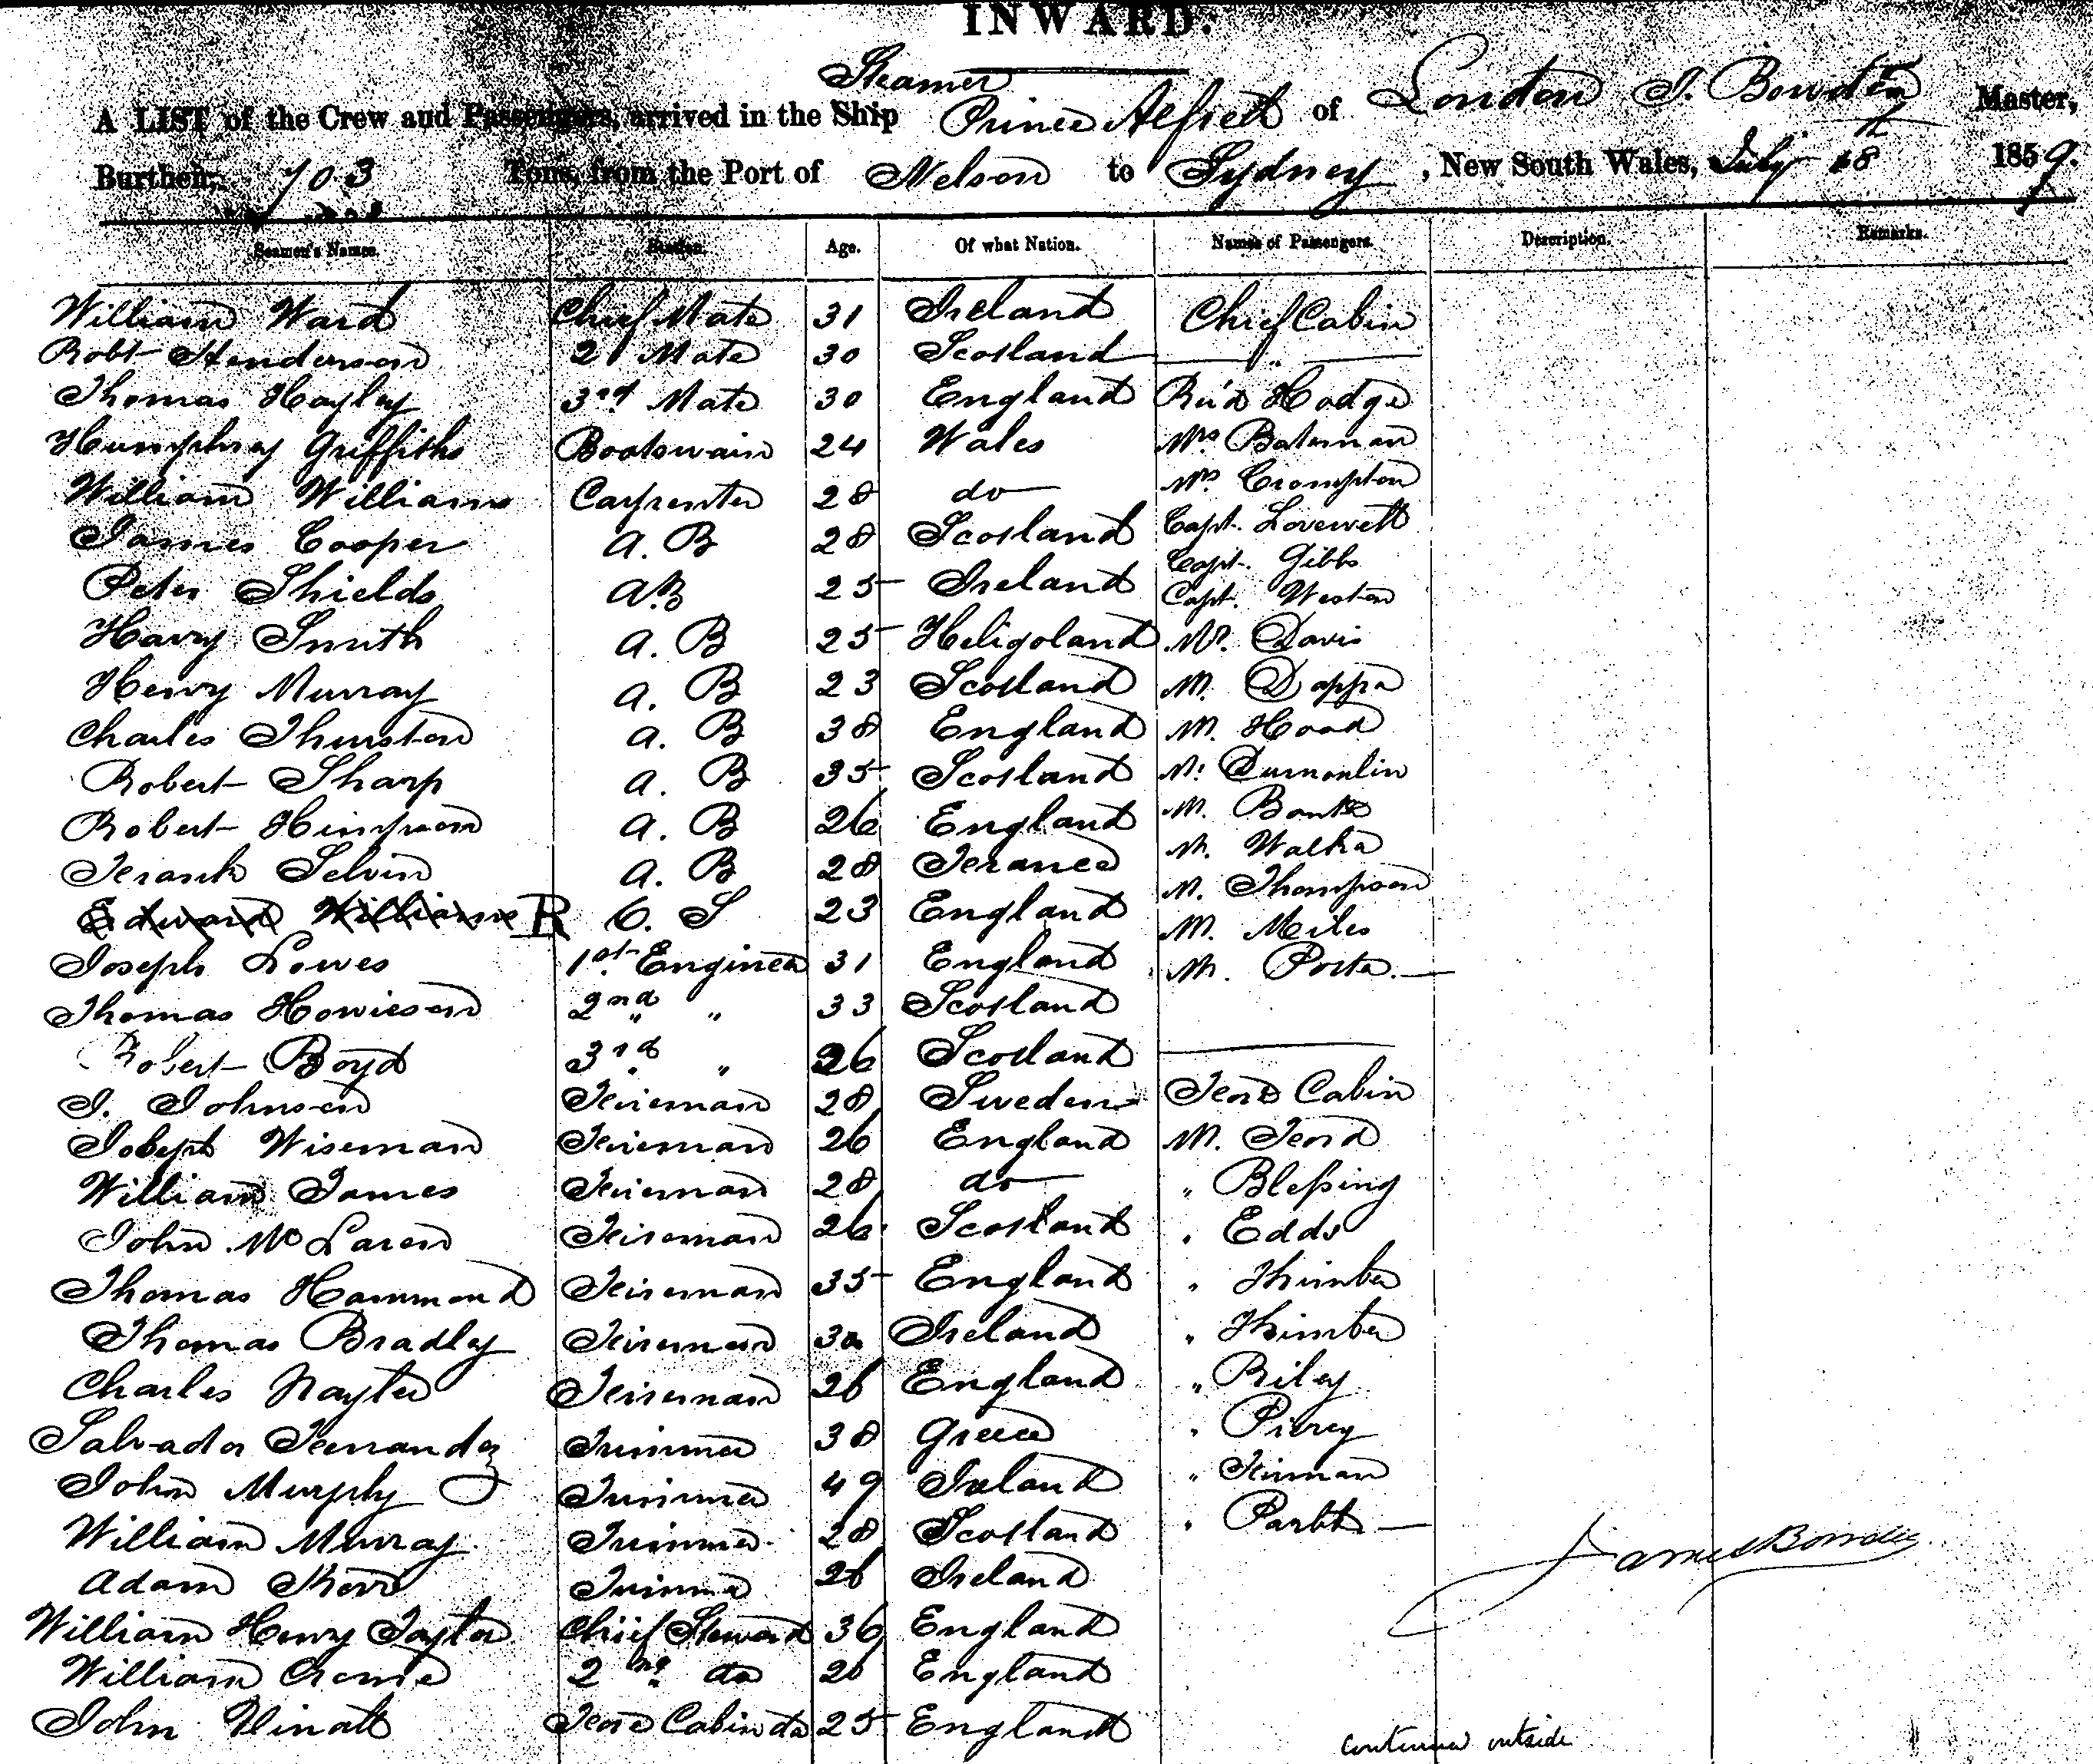 INWARD.
Steamer
A LIST of the Crew and Passengers, arrived in the Ship Prince Alfred of London J. Bowden Master,
Burthen, 703 Tons, from the Port of Nelson to Sydney, New South Wales, July 18th 1859.
Seamen's Names. Station. Age. Of what Nation. Names of Passengers. Description. Remarks.
William Ward Chief Mate 31 Ireland Chief Cabin
Robt Henderson 2d Mate 30 Scotland "
Thomas Hayley 3rd Mate 30 England Hodge
Humphrey Griffiths Boatswain 24 Wales Mrs Bateman
William Williams Carpenter 28 do Mrs Crompton
James Cooper A. B 28 Scotland Capt. Lovewell
Peter Shields A.B 25 Ireland Capt. Gibbs
Capt. Weston
Harry Smith A. B 25 Heligoland Mr. Davis
Henry Murray A. B 23 Scotland M. Dappa
Charles Thurston A. B 38 England M. Hood
Robert Sharp A. B 35 Scotland Mr Dumoulin
Robert Himpson A. B 26 England M. Banks
Frank Selvin A. B 28 France M. Walker
Edward Williams R O. S 23 England M. Thompson
M. Miles
Joseph Lowes 1st Engineer 31 England M. Porter
Thomas Howieson 2nd " 33 Scotland
Robert Boyd 3rd " 26 Scotland
J. Johnson Fireman 28 Sweden Fore Cabin
Joseph Wiseman Fireman 26 England M. Ford
William James Fireman 28 do " Blessing
John McLaren Fireman 26 Scotland " Edds
Thomas Hammond Fireman 35 England " Kimber
Thomas Bradley Fireman 30 Ireland " Kimber
Charles Naylor Fireman 26 England " Riley
Salvador Fernandez Trimmer 38 Greece " Piercy
John Murphy Trimmer 49 Ireland " Firman
William Murray Trimmer 28 Scotland "
James Bowden
Adam Kerr Trimmer 26 Ireland
William Henry Taylor Chief Steward 36 England
William 2nd do 26 England
John Fore Cabin do 25 England
Continued outside